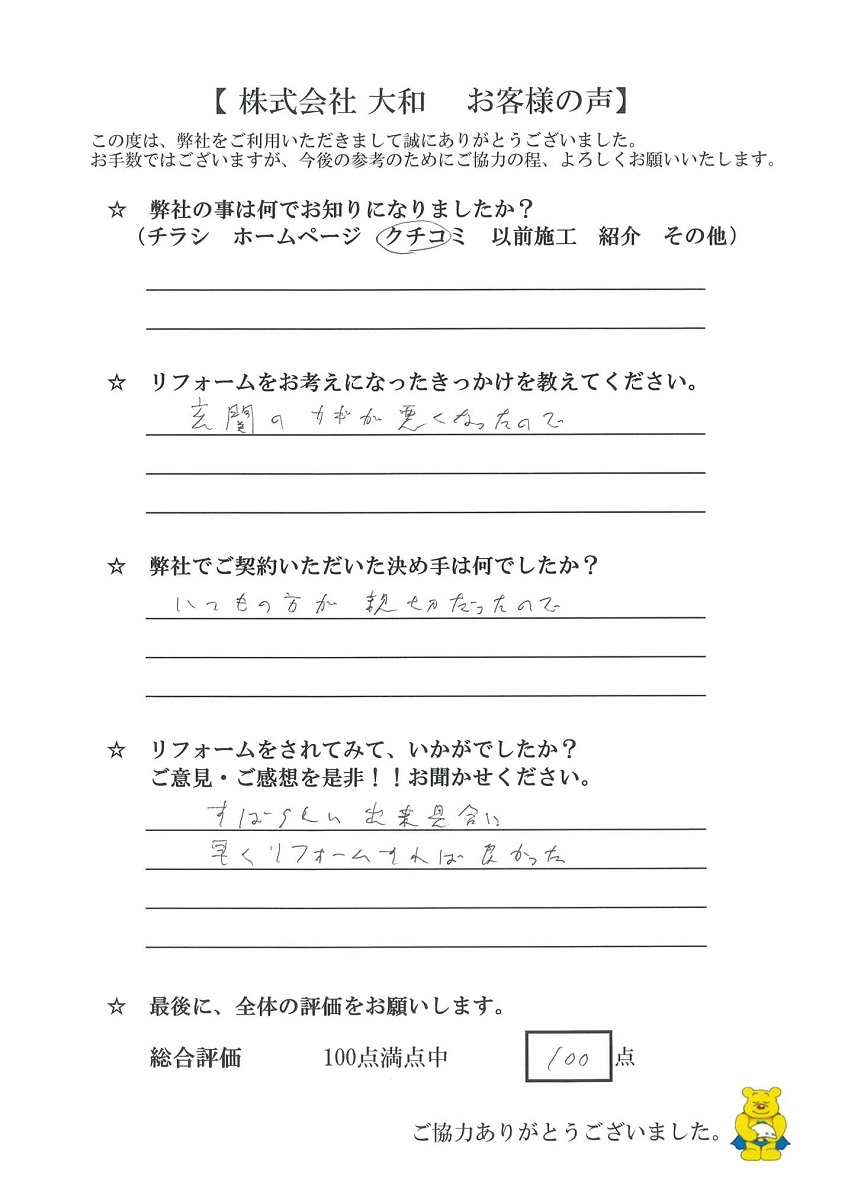 【 株式会社 大和　お客様の声】
この度は、弊社をご利用いただきまして誠にありがとうございました。
お手数ではございますが、今後の参考のためにご協力の程、よろしくお願いいたします。
☆　弊社の事は何でお知りになりましたか？
（チラシ　ホームページ　クチコミ　以前施工　紹介　その他）
☆　リフォームをお考えになったきっかけを教えてください。
玄関のカギが悪くなったので
☆　弊社でご契約いただいた決め手は何でしたか？
いつもの方が親切だったので
☆　リフォームをされてみて、いかがでしたか？
ご意見・ご感想を是非！！お聞かせください。
すばらしい出来具合に
早くリフォームすれば良かった
☆　最後に、全体の評価をお願いします。
総合評価　100点満点中　100　点
ご協力ありがとうございました。